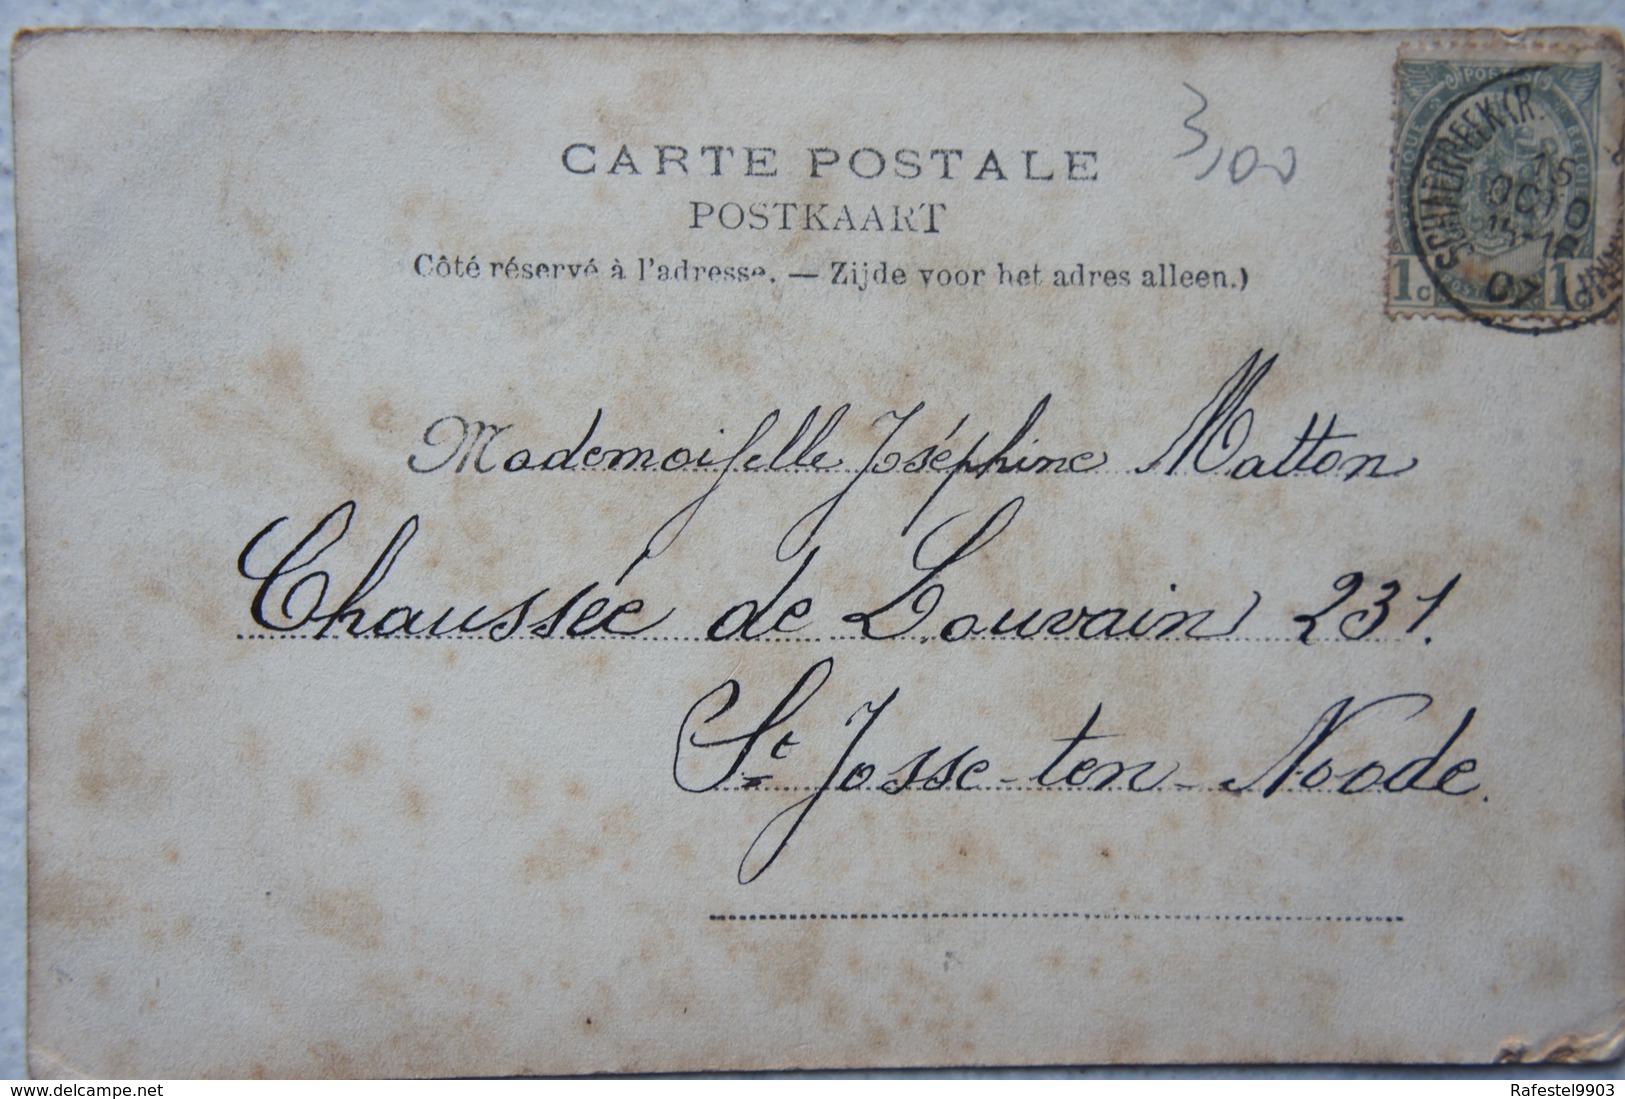 CARTE POSTALE
3,00
POSTKAART
Côté réservé à l'adresse. — Zijde voor het adres alleen.)
POSTES
BELGIQUE
1c 1c
SCHAERBEEK (R.
15
OCT
07
Mademoiselle Joséphine Matton
Chaussée de Louvain 231.
St Josse-ten-Noode.
www.delcampe.net
Rafestel9903